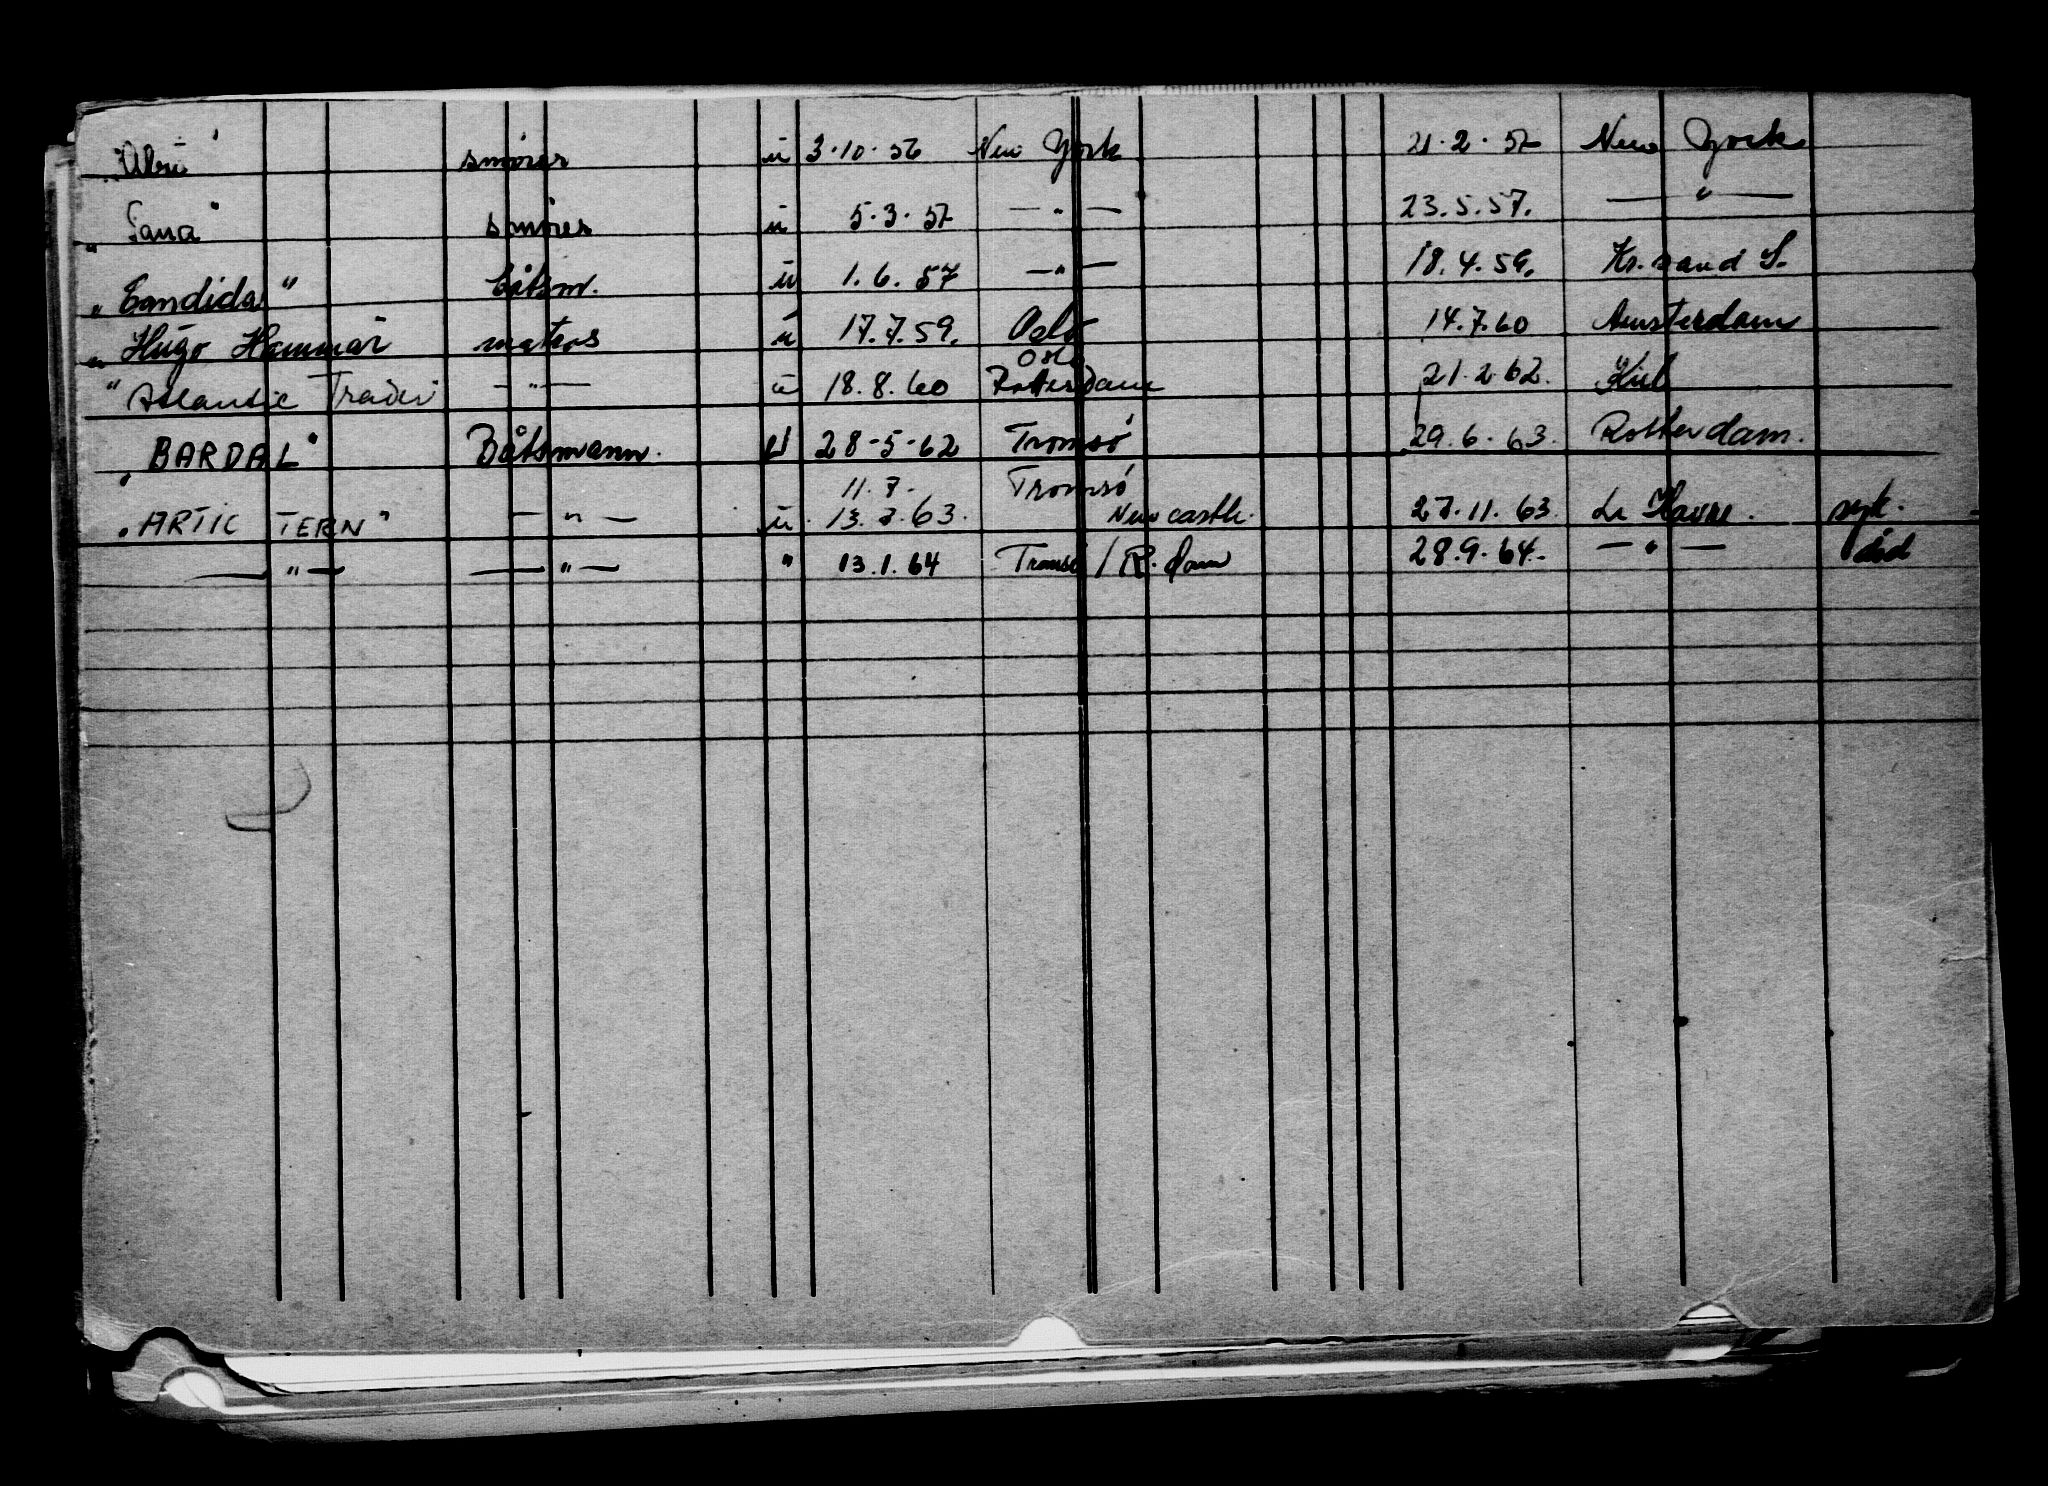 smører u 3.10.56 New York 21.2.57 New York
" Sana" smører u 5.3.57 — " — 23.5.57. — " —
" Candida " båtsm. u 1.6.57 — " — 18.4.59. Kr.sand S.
" Hugo Hammar matros u 17.7.59. Oslo 14.7.60 Amsterdam
Oslo
" Atlantic Trader — " — u 18.8.60 Rotterdam 21.2.62. Kiel
" BARDAL" Båtsmann. U 28-5-62 Tromsø 29.6.63. Rotterdam.
11.7. Tromsø
" ARTIC TERN" — " — u. 13.7.63. Newcastle. 27.11.63. Le Havre. syk.
— " — — " — " 13.1.64 Tromsø / R.dam 28.9.64. — " — død